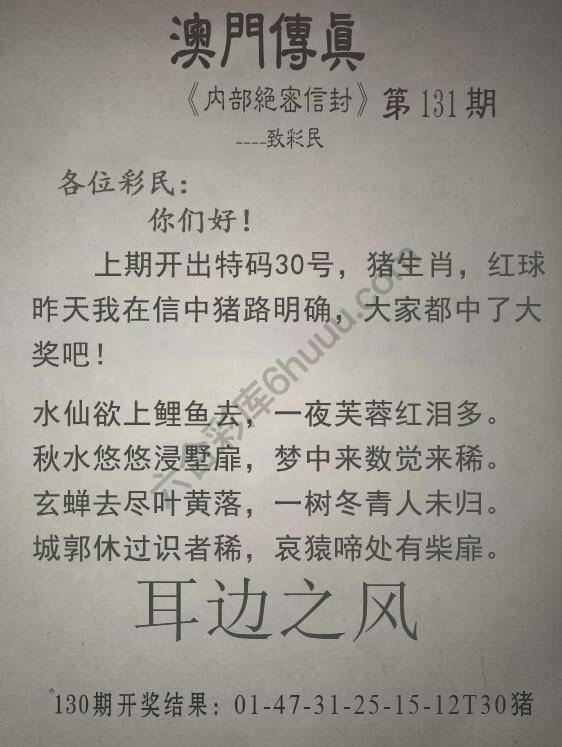 澳門傳眞
《内部絕密信封》第131期
----致彩民
各位彩民：
你们好！
上期开出特码30号，猪生肖，红球
昨天我在信中猪路明确，大家都中了大
奖吧！
水仙欲上鲤鱼去，一夜芙蓉红泪多。
秋水悠悠浸墅扉，梦中来数觉来稀。
玄蝉去尽叶黄落，一树冬青人未归。
城郭休过识者稀，哀猿啼处有柴扉。
耳边之风
130期开奖结果：01-47-31-25-15-12T30猪
六合彩库6huuu.com